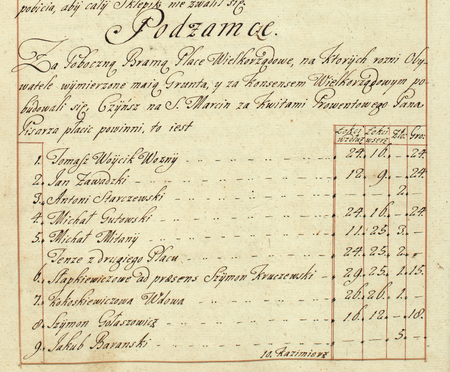 pobicia, aby cały Sklepik nie zwalił się.
Podzamcze.
Za Poboczną Bramą Place Wielkorządowe, na których rożni Oby-
watele wymierzone maią Grunta, y za Konsensem Wielkorządowym po-
budowali się, Czynsz na S. Marcin za Kwitami Prowentowego Pana
Pisarza płacić powinni, to iest
Łokci wzdłuż Łokci wszerz Zło: Gro:
1. Tomasz Woycik Wozny 24. 16. – 24.
2. Jan Zawadzki 12 9. – 24.
3. Antoni Starczewski 2.
4. Michał Gutowski 24. 16. – 24.
5. Michał Mitany 11. 25. 3. –
Tenze z drugiego Placu 24. 25. 2
6. Słapkiewiczowe ad præsens Szymon Kruczewski 29. 25. 1. 15.
7. Kokoskiewiczowa Wdowa 26. 26. 1. –
8. Szymon Gołaszowicz 16. 12. – 18.
9. Jakub Baranski 5.
10. Kazimierz